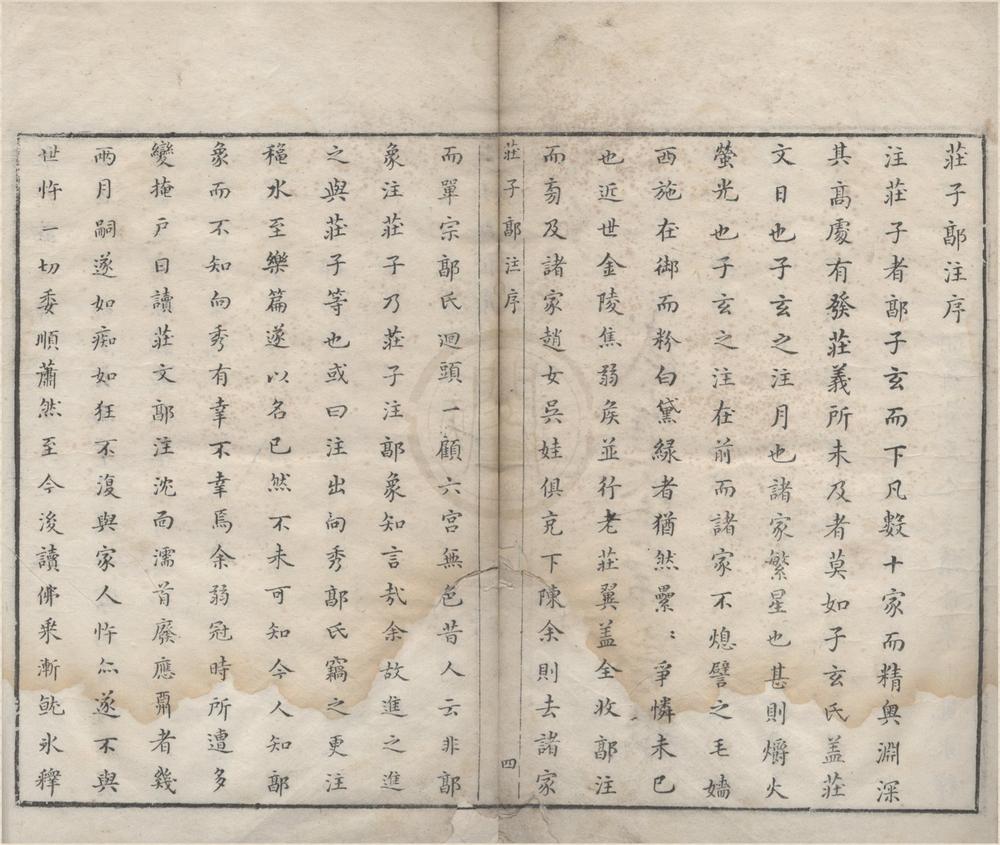 莊子郭注序
注莊子者郭子玄而下凡數十家而精奧淵深
其高處有發莊義所未及者莫如子玄氏蓋莊
文日也子玄之注月也諸家繁星也甚則爝火
螢光也子玄之注在前而諸家不熄譬之毛嬙
西施在御而粉白黛綠者猶然纍：爭憐未已
也近世金陵焦弱矦並行老莊翼盖全收郭注
而旁及諸家趙女吳娃俱充下陳余則去諸家
莊子郭注序 四
而單宗郭氏迴頭一顧六宮無色昔人云非郭
象注莊子乃莊子注郭象知言哉余故進之進
之與莊子等也或曰注出向秀郭氏竊之更注
秋水至樂篇遂以名已然不未可知今人知郭
象而不知向秀有幸不幸焉余弱冠時所遭多
變掩戶日讀莊文郭注沈面濡首廢應酬者幾
兩月嗣遂如痴如狂不復與家人忤亦遂不與
世忤一切委順蕭然至今後讀佛乘漸就氷釋